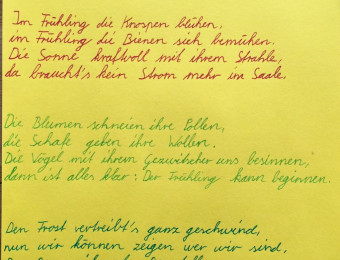 Im Frühling die Knospen blühen,
im Frühling die Bienen sich bemühen.
Die Sonne kraftvoll mit ihrem Strahle,
da braucht's kein Strom mehr im Saale.
Die Blumen schneien ihre Pollen,
die Schafe geben ihre Wollen.
Die Vögel mit ihrem Gezwitscher uns besinnen,
dann ist alles klar: Der Frühling kann beginnen.
Den Frost vertreibt's ganz geschwind,
nun wir können zeigen wer wir sind,